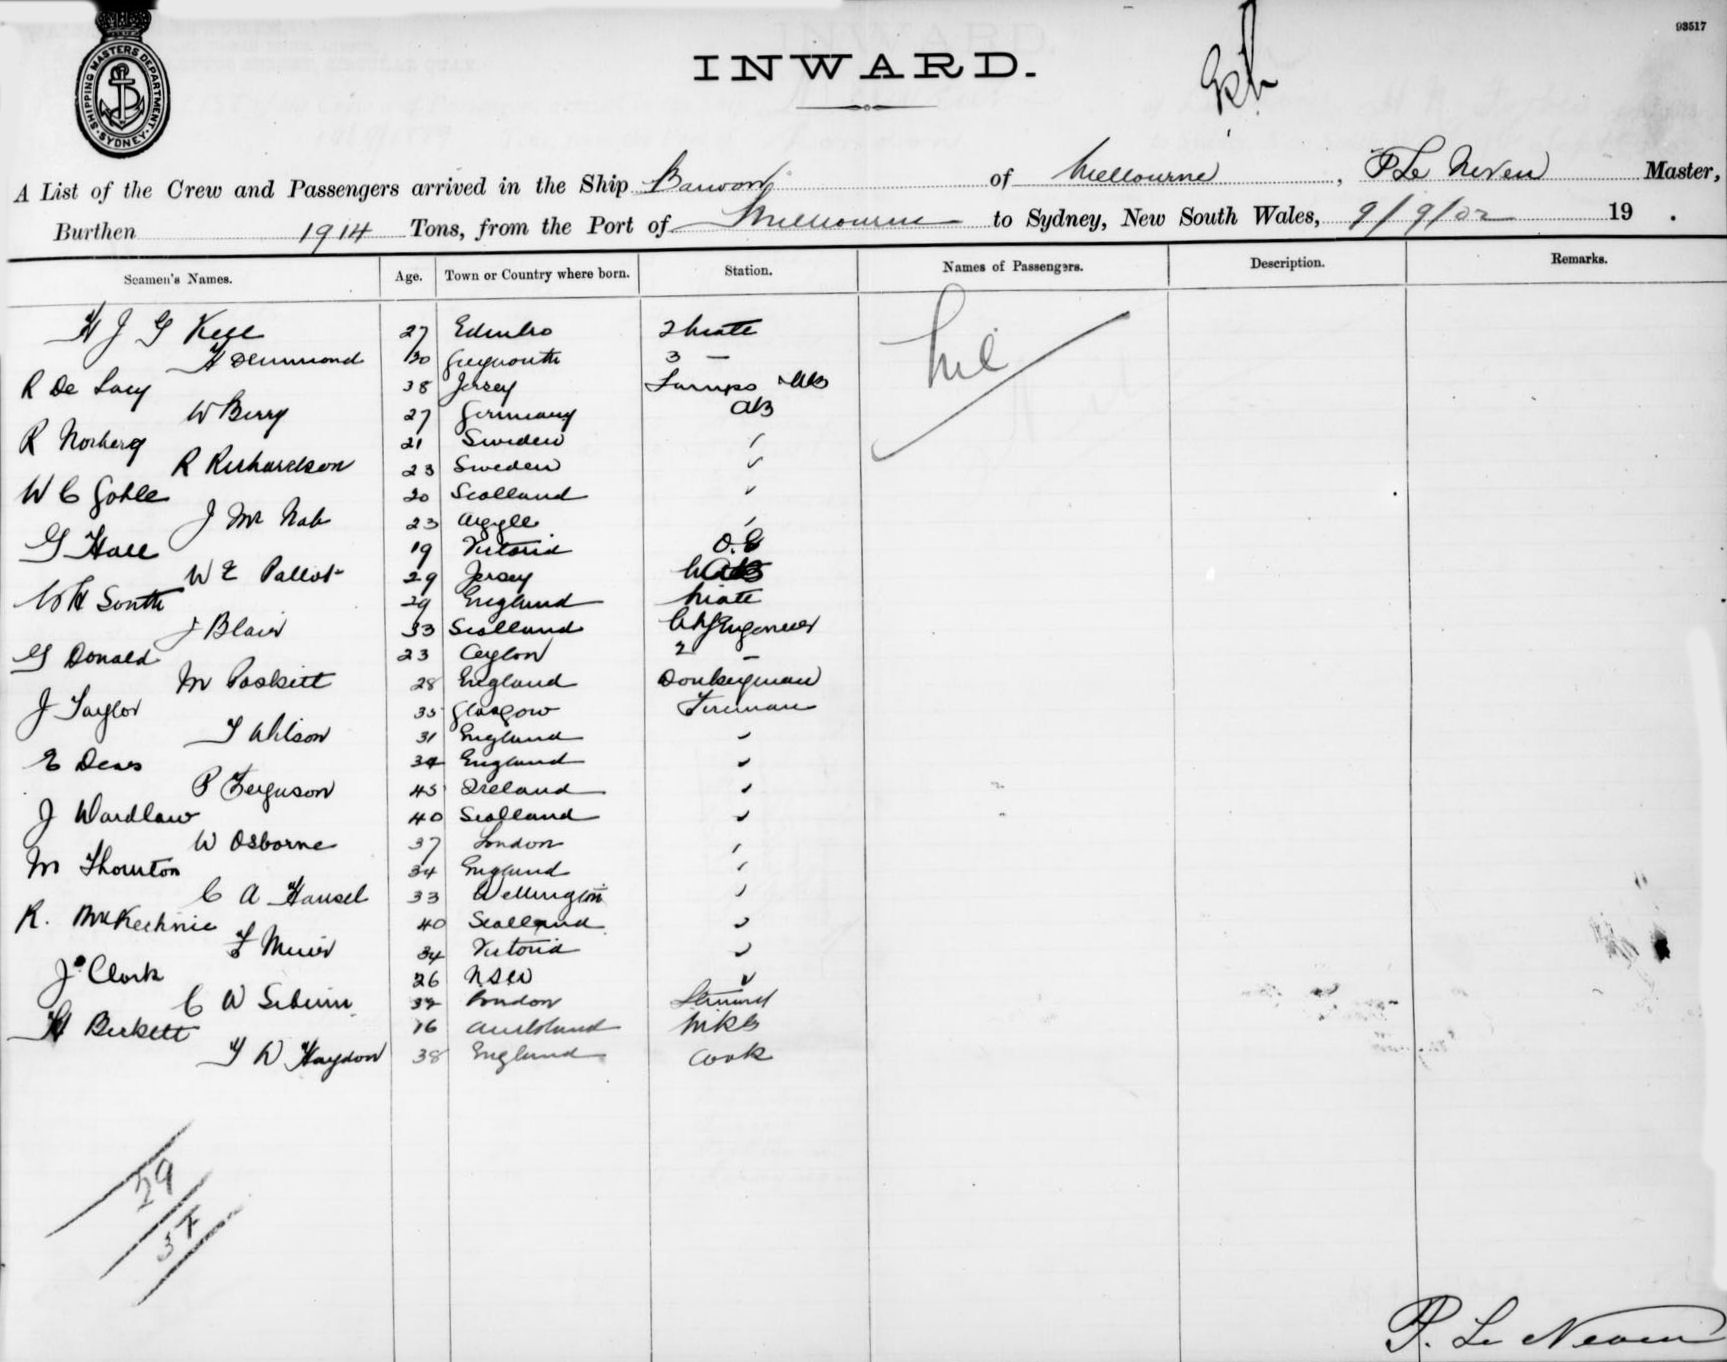 93517
SHIPPING MASTERS DEPARTMENT · SYDNEY ·
INWARD.
A List of the Crew and Passengers arrived in the Ship Barwon of Melbourne, P Le Neven Master,
Burthen 1914 Tons, from the Port of Melbourne to Sydney, New South Wales, 9/9/02 19 .
Seamen's Names. Age. Town or Country where born. Station. Names of Passengers. Description. Remarks.
H J G Kell 27 Edinbro 2 Mate nil
H Drummond 30 Greymouth 3 —
R De Lacy 38 Jersey Lamps AB
W Berry 27 Germany AB
R Norberg 21 Sweden
R Richardson 23 Sweden
W C Goble 20 Scotland
J Mc Nab 23 Argyle
G Hall 19 Victoria O.S
W E Pallot 29 Jersey
W H South 29 England Mate
J Blair 33 Scotland Ch Engineer
G Donald 23 Ceylon 2 —
M Paskett 28 England Donkeyman
J Taylor 35 Glasgow Fireman
T Wilson 31 England
E Dews 34 England
P Ferguson 45 Ireland
J Wardlaw 40 Scotland
W Osborne 37 London
M Thornton 34 England
C A Hansel 33 Wellington
R. McKechnie 40 Scotland
F Muir 34 Victoria
J Clark 26 NSW
C W 34 London Steward
H Beckett 16 Auckland
F W Haydon 38 England Cook
29
P. Le Neven